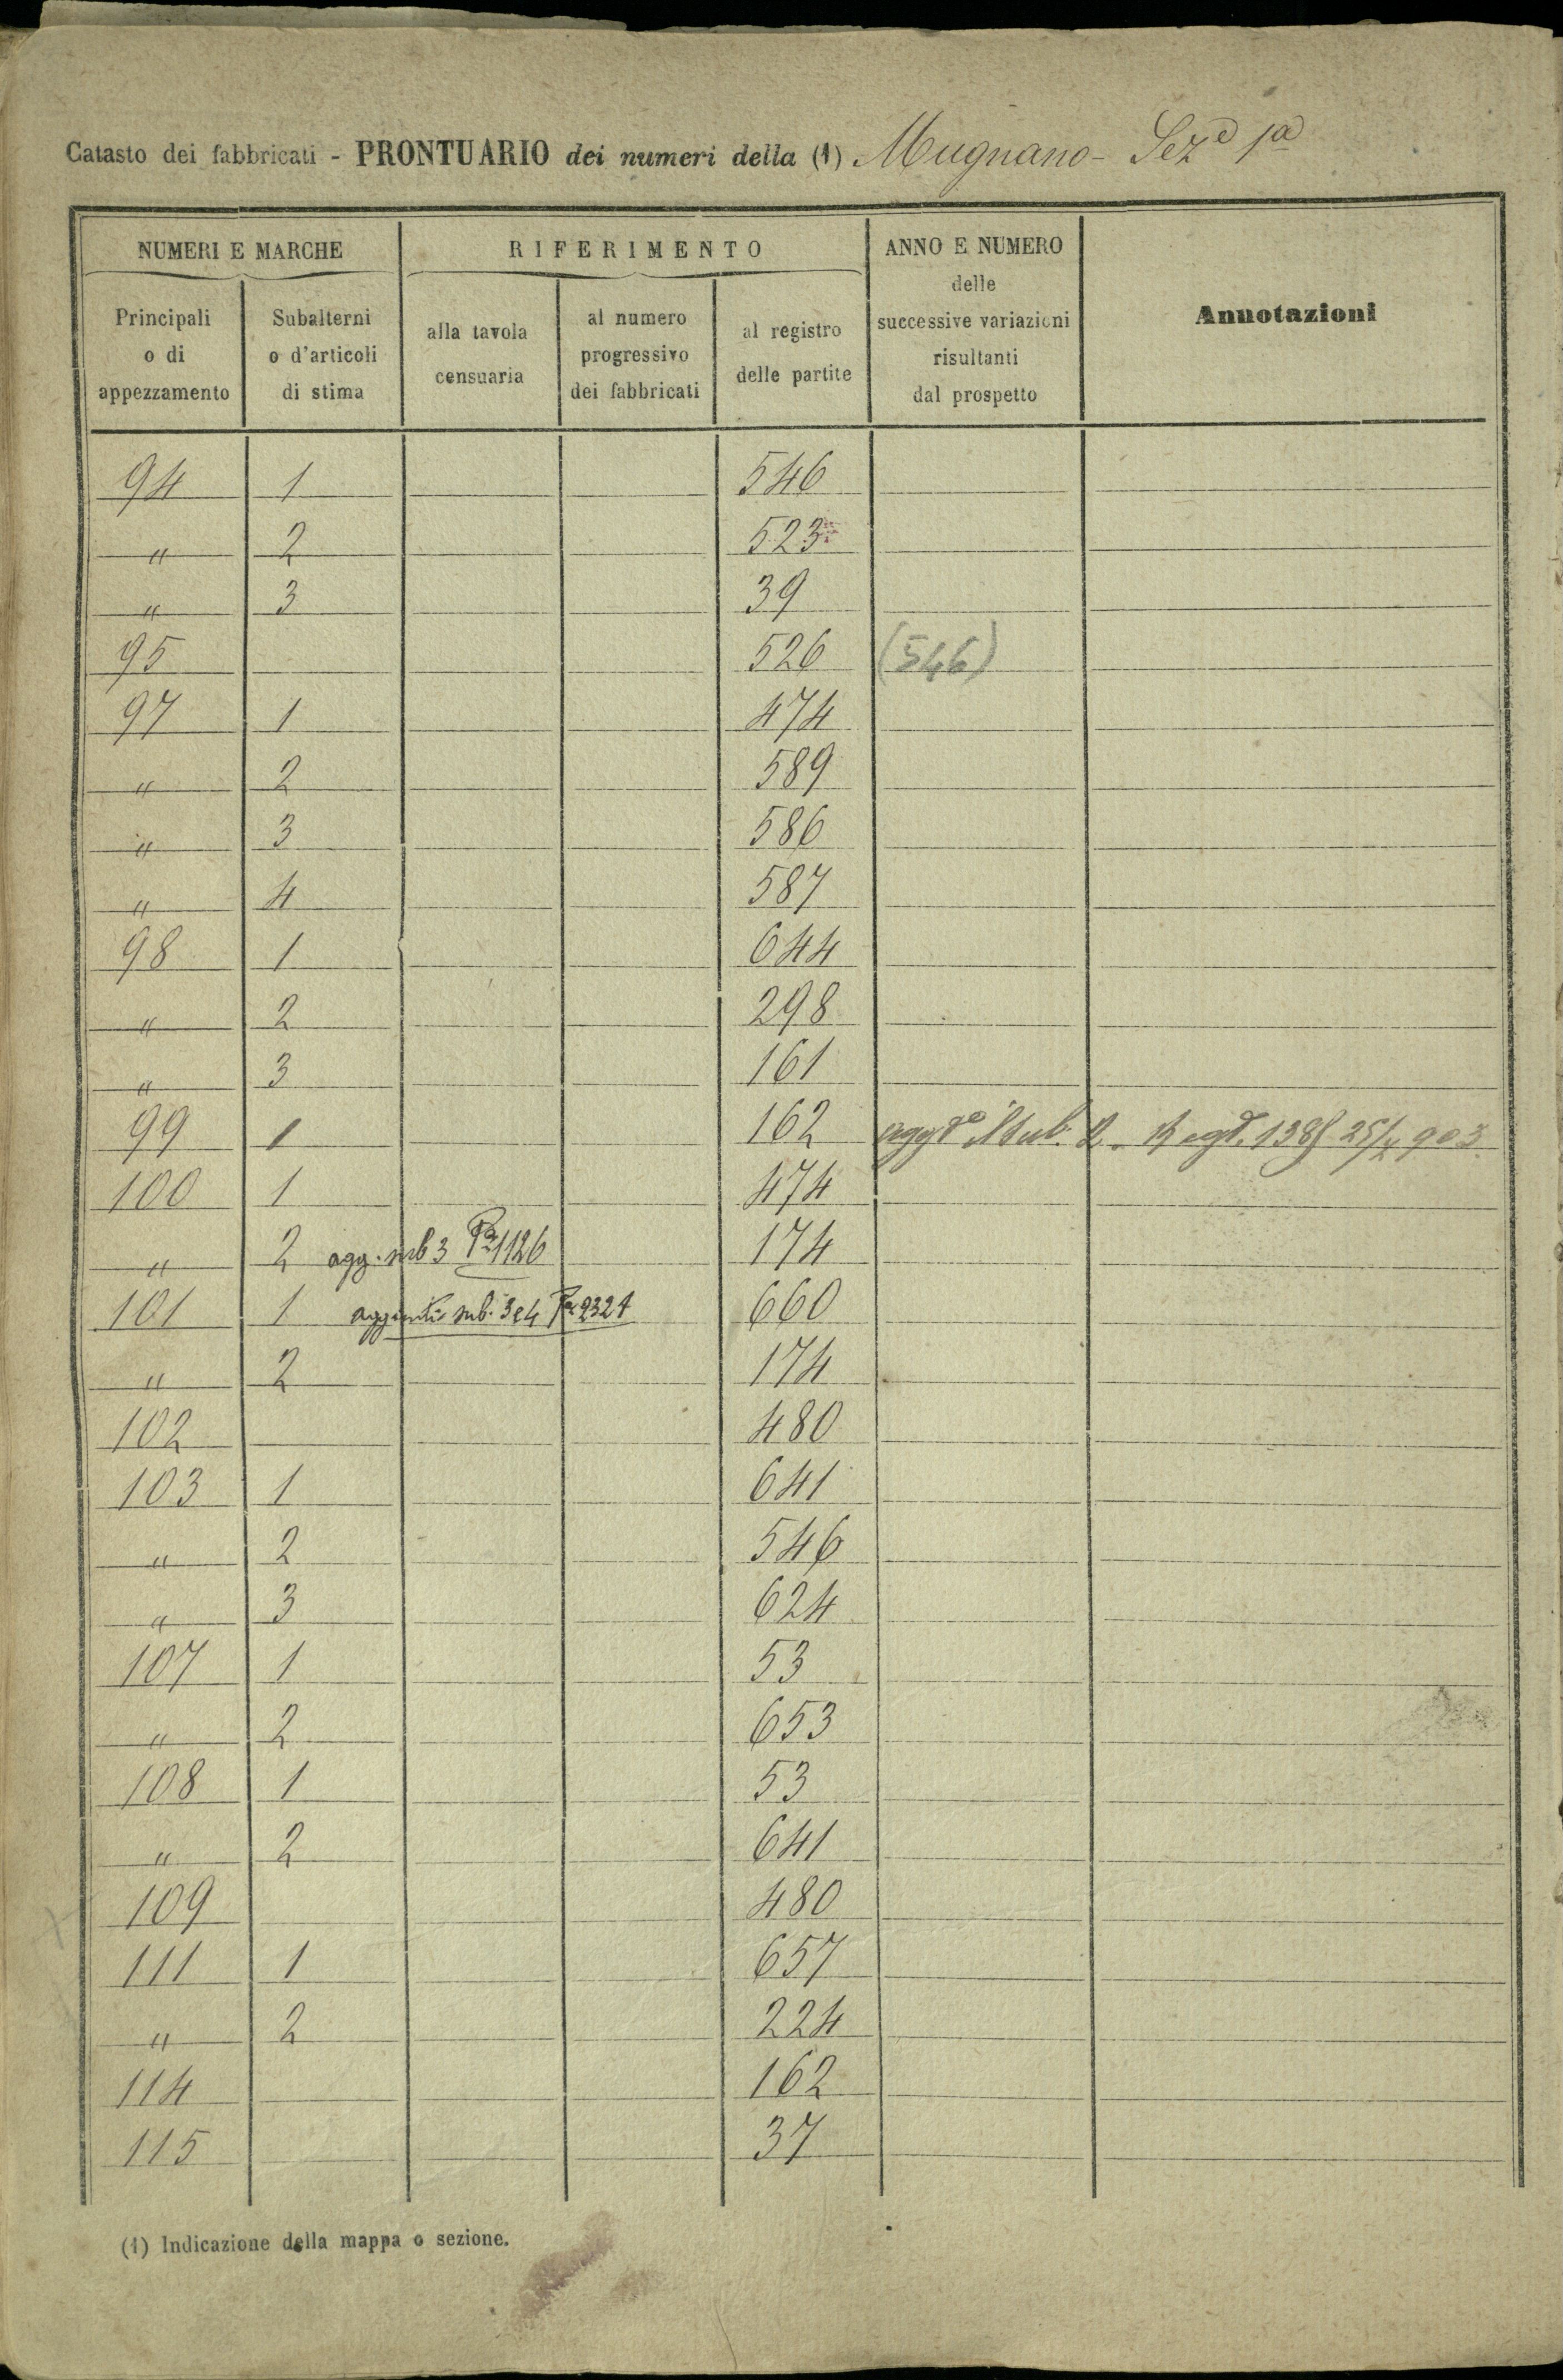 Catasto dei fabbricati - PRONTUARIO dei numeri della (1) Mugnano - Seze 1a
NUMERI E MARCHE
RIFERIMENTO
ANNO E NUMERO
delle
successive variazioni
risultanti
dal prospetto
Annotazioni
Principali
o di
appezzamento
Subalterni
o d'articoli
di stima
alla tavola
censuaria
al numero
progressivo
dei fabbricati
al registro
delle partite
94 1 546
" 2 523
" 3 39
95 526 (546)
97 1 474
" 2 589
" 3 586
" 4 587
98 1 644
" 2 298
" 3 161
99 1 162 aggto il sub. 2
100 1 474
" 2 agg. sub 3 Pa 1126 174
101 1 aggiunti sub. 3 e 4 Pa 2324 660
" 2 174
102 480
103 1 641
" 2 546
" 3 624
107 1 53
" 2 653
108 1 53
" 2 641
109 480
111 1 657
" 2 224
114 162
115 37
(1) Indicazione della mappa o sezione.